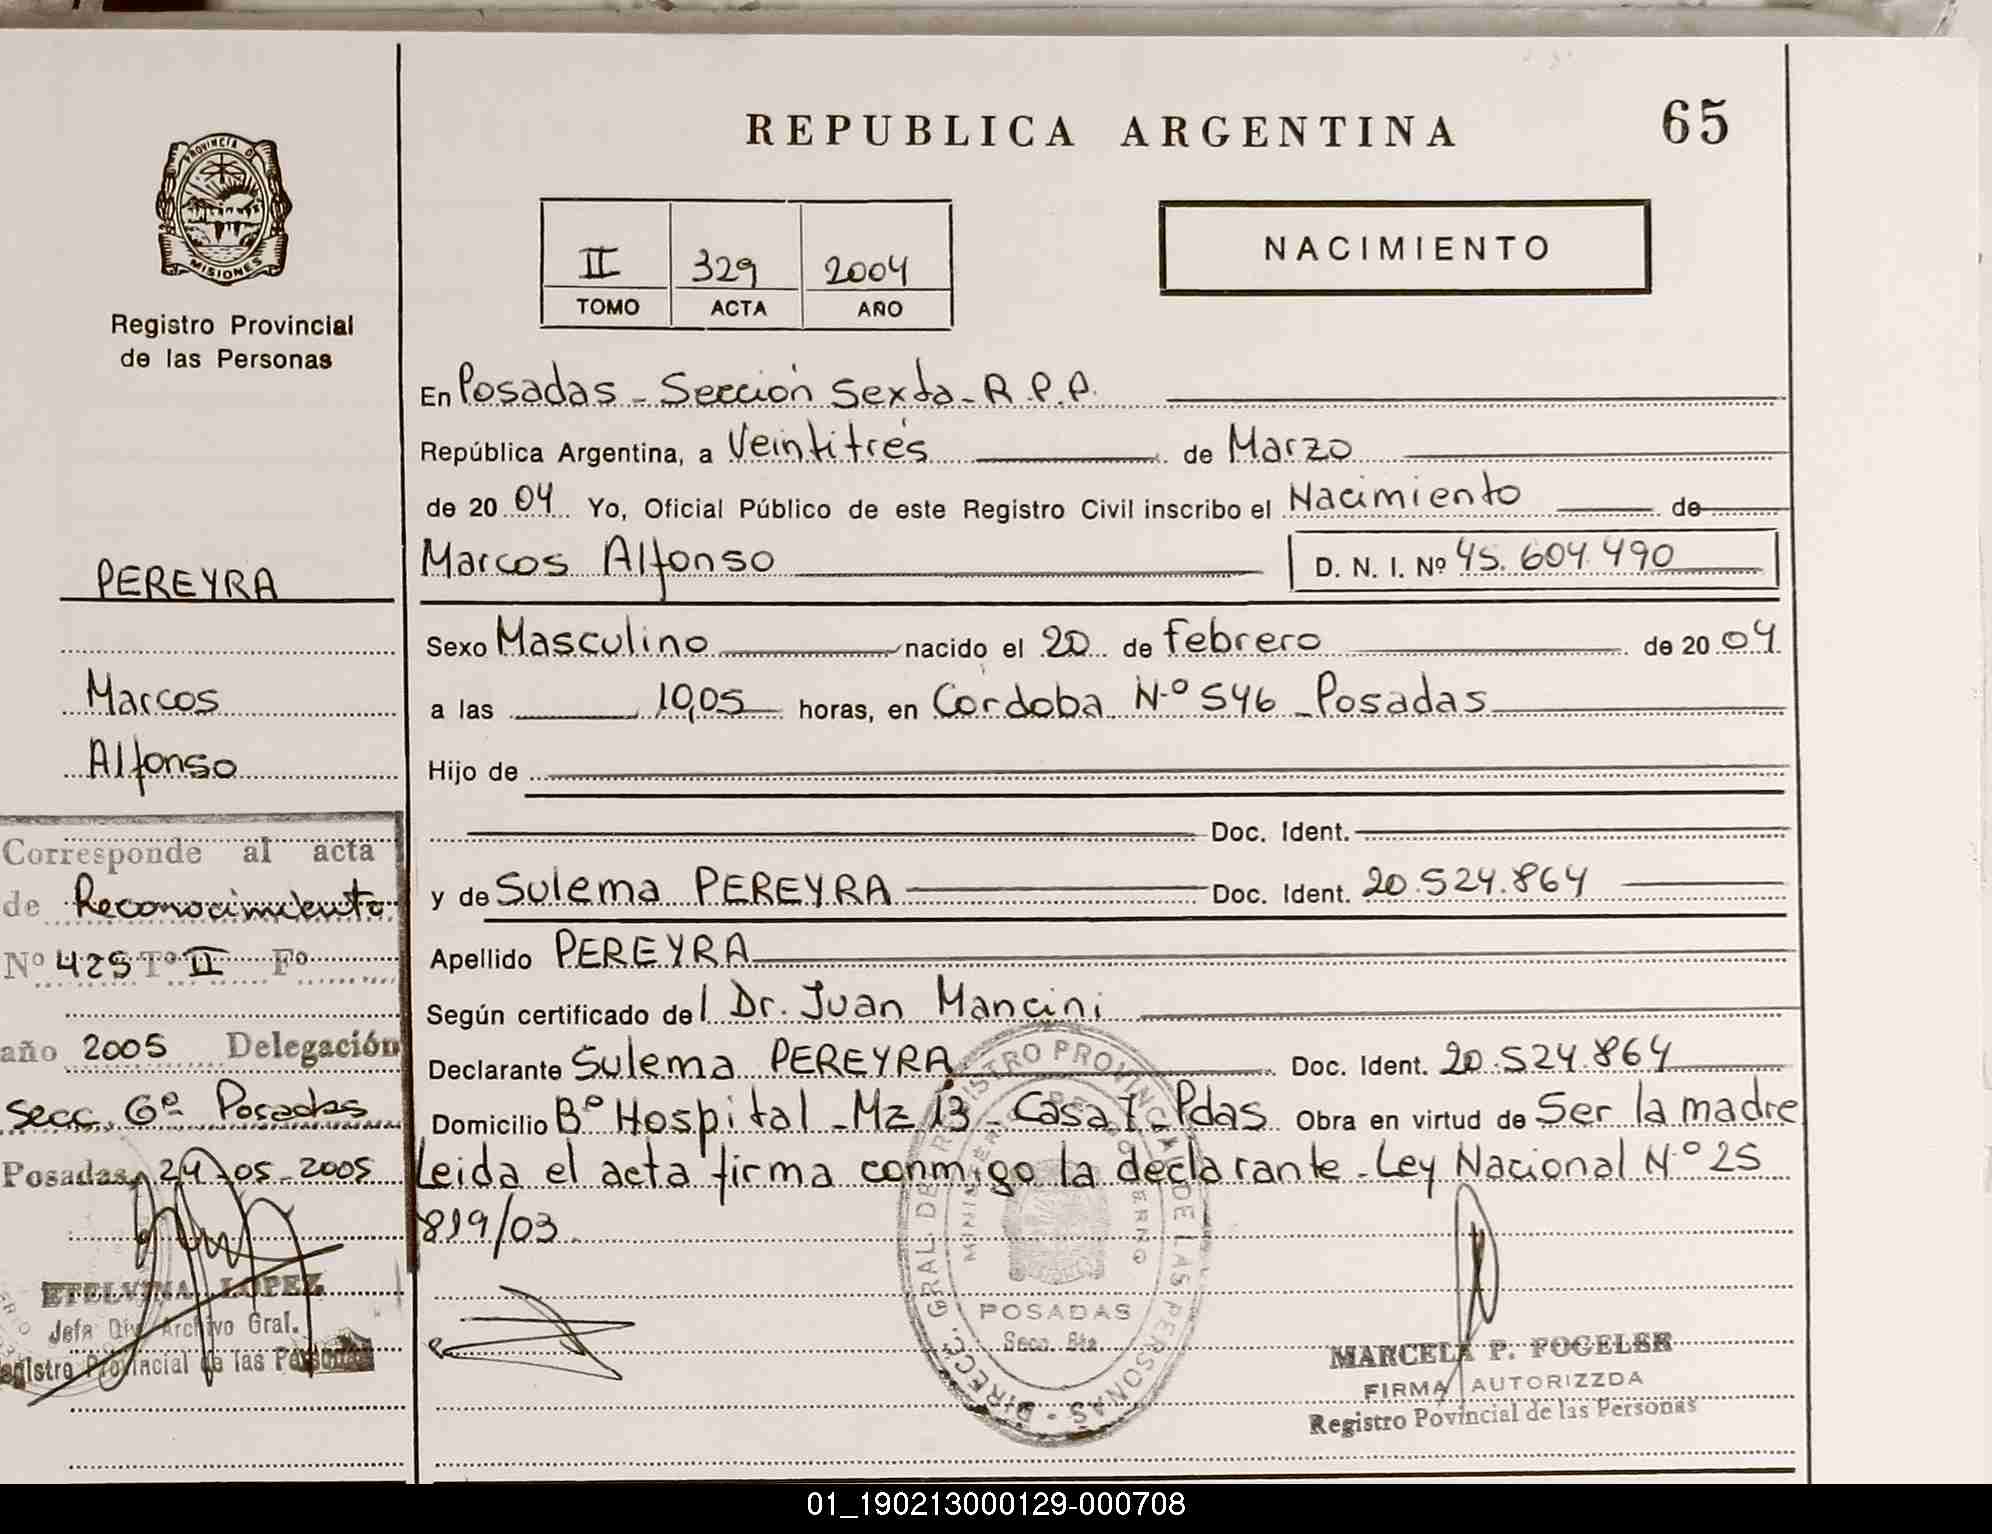 REPUBLICA ARGENTINA
65
PROVINCIA DE
MISIONES
Registro Provincial
de las Personas
II 329 2004
TOMO ACTA AÑO
NACIMIENTO
En Posadas - Sección Sexta - R.P.P.
República Argentina, a Veintitrés de Marzo
de 20 04 Yo, Oficial Público de este Registro Civil inscribo el Nacimiento de
Marcos Alfonso D. N. I. Nº 45.604.490
Sexo Masculino nacido el 20 de febrero de 20 04
a las 10,05 horas, en Córdoba N.º 546 - Posadas
Hijo de
Doc. Ident.
y de Sulema PEREYRA Doc. Ident. 20.524.864
Apellido PEREYRA
Según certificado del Dr. Juan Mancini
Declarante Sulema PEREYRA Doc. Ident. 20.524.864
Domicilio Bº Hospital - Mz 13 - Casa 7 - Pdas Obra en virtud de Ser la madre
Leida el acta firma conmigo la declarante - Ley Nacional N.º 25
819/03.
PEREYRA
Marcos
Alfonso
Corresponde al acta
de Reconocimiento
Nº 425 Tº II Fº
año 2005 Delegación
Secc. 6ª Posadas
Posadas, 24-05-2005
ETELVINA LOPEZ
Jefa Div. Archivo Gral.
Registro Provincial de las Personas
DIRECC. GRAL. DEL REGISTRO PROVINCIAL DE LAS PERSONAS
MINISTERIO DE GOBIERNO
POSADAS
Secc. 6ta
MARCELA P. FOGELER
FIRMA AUTORIZZDA
Registro Povincial de las Personas
01_190213000129-000708